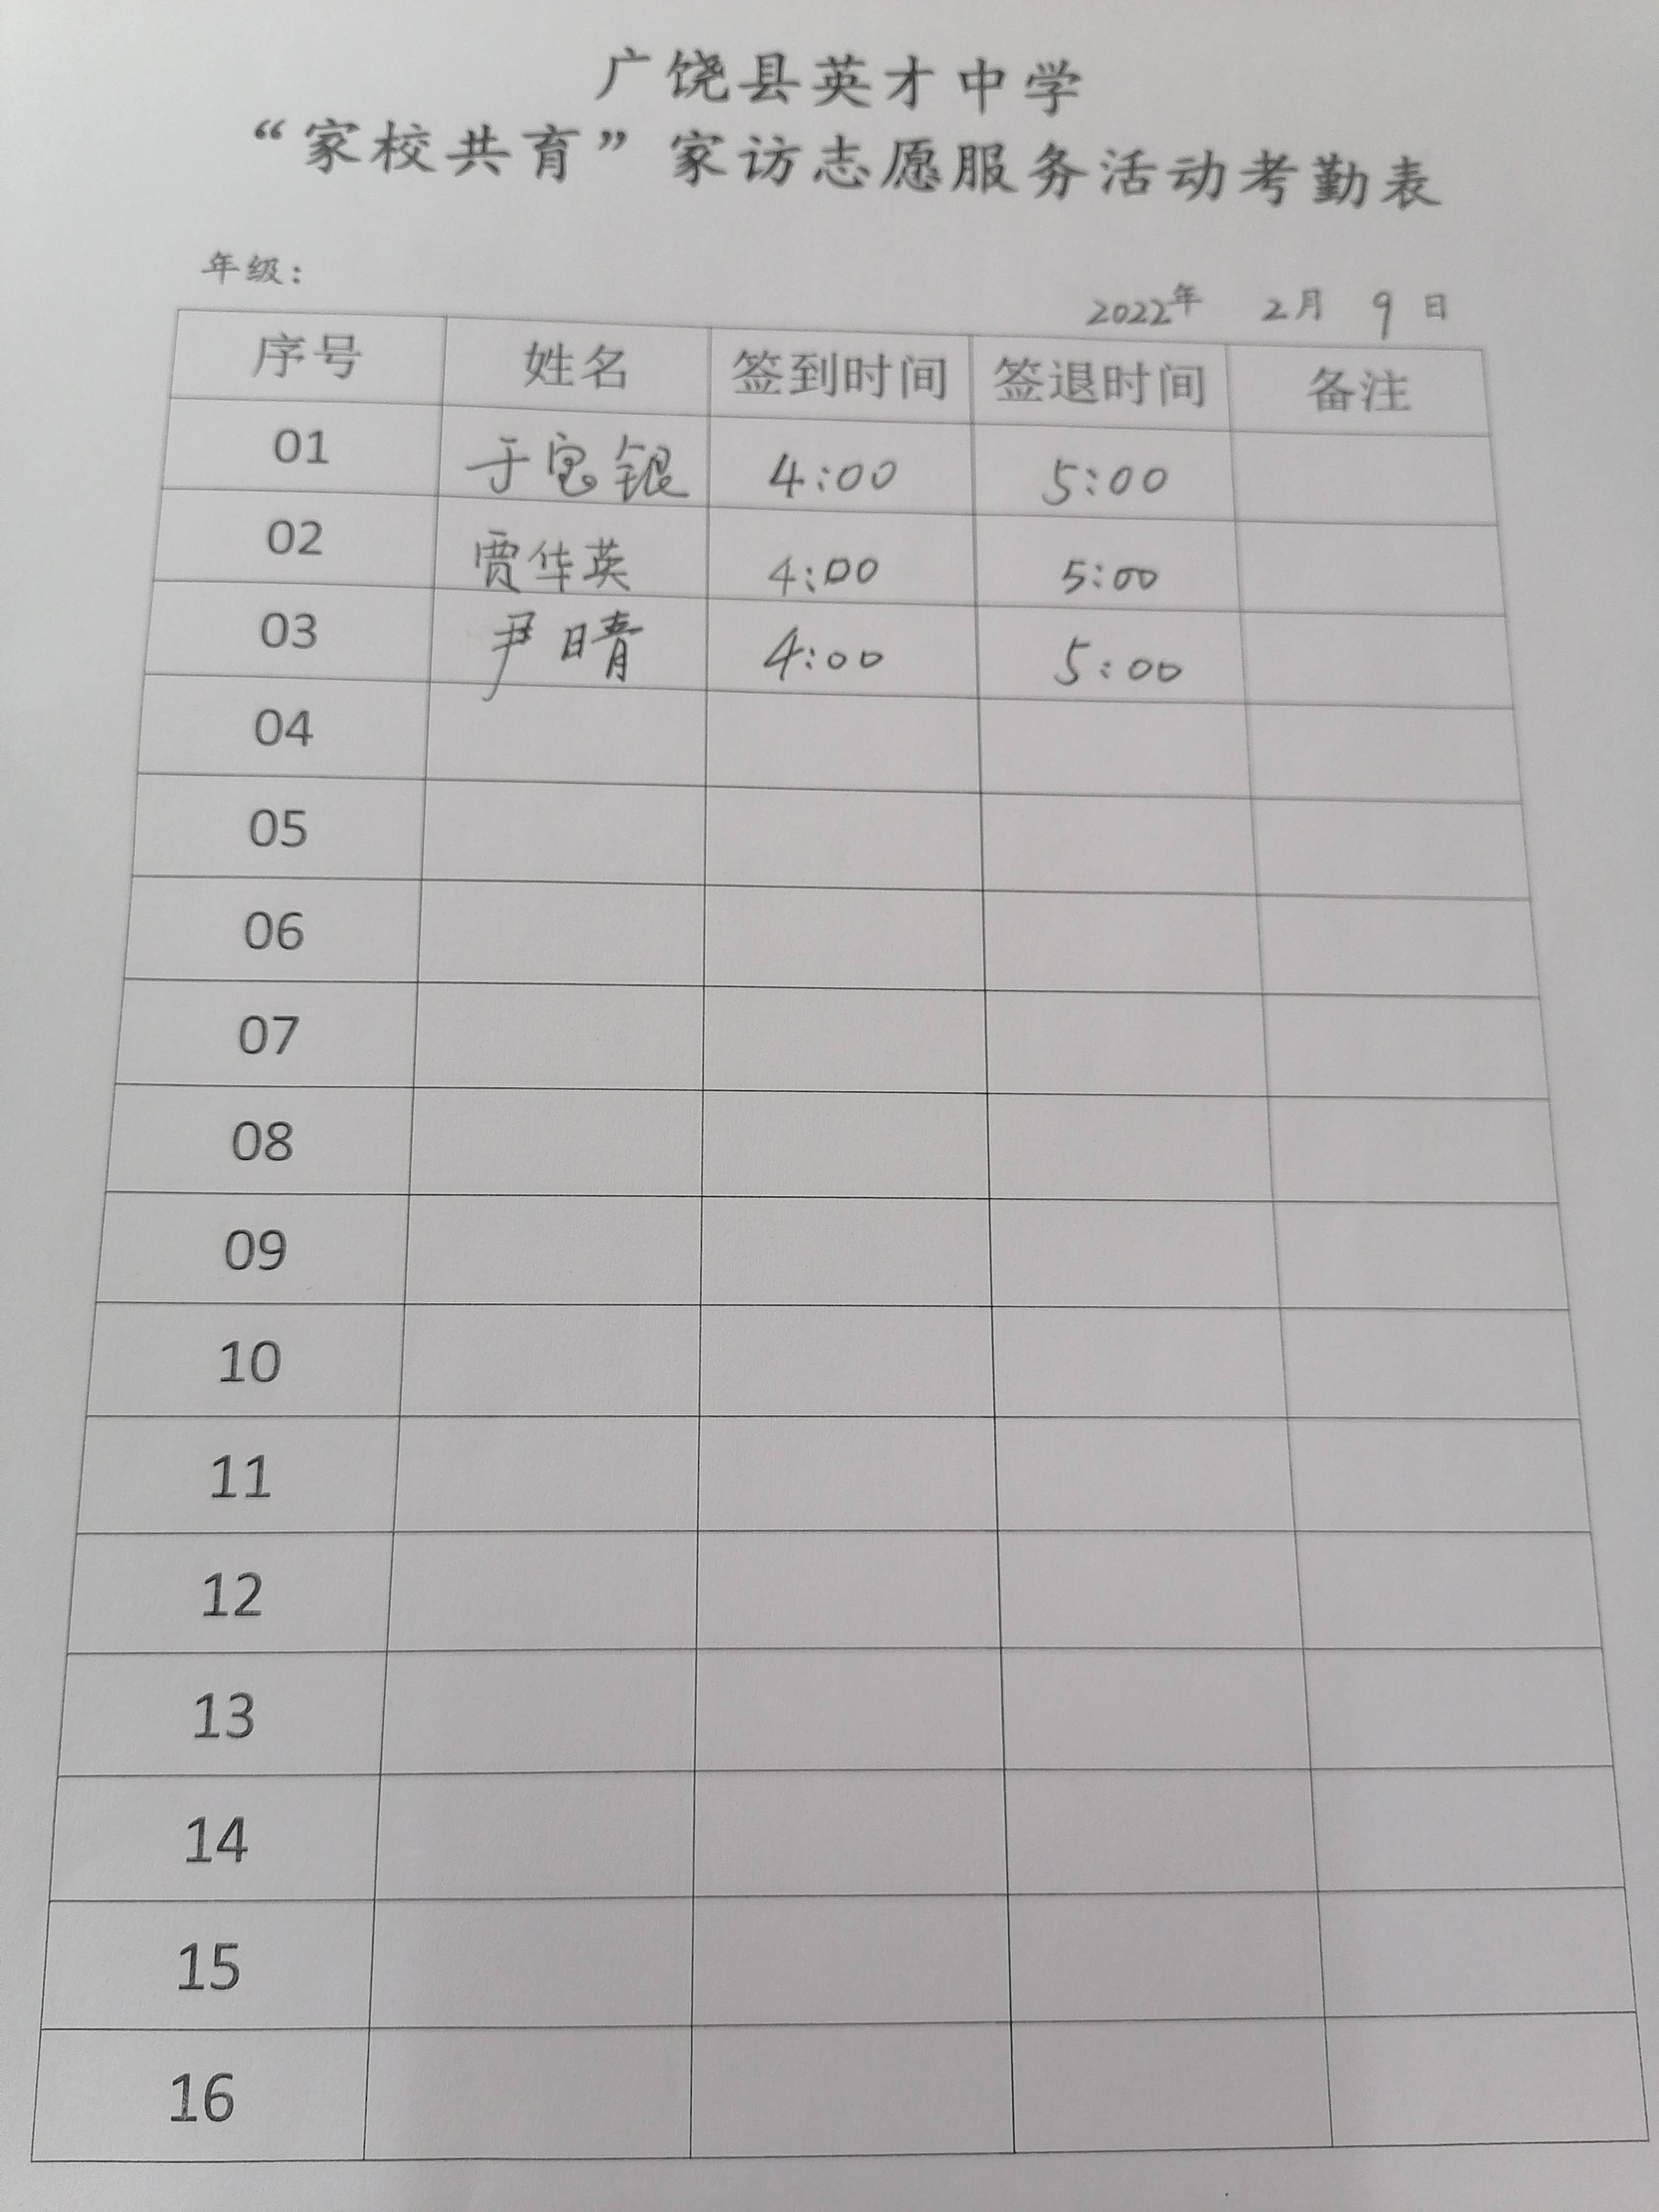 广饶县英才中学
“家校共育”家访志愿服务活动考勤表
年级：
2022年 2月 9日
序号 姓名 签到时间 签退时间 备注
01 于宝银 4:00 5:00
02 贾华英 4:00 5:00
03 尹晴 4:00 5:00
04
05
06
07
08
09
10
11
12
13
14
15
16